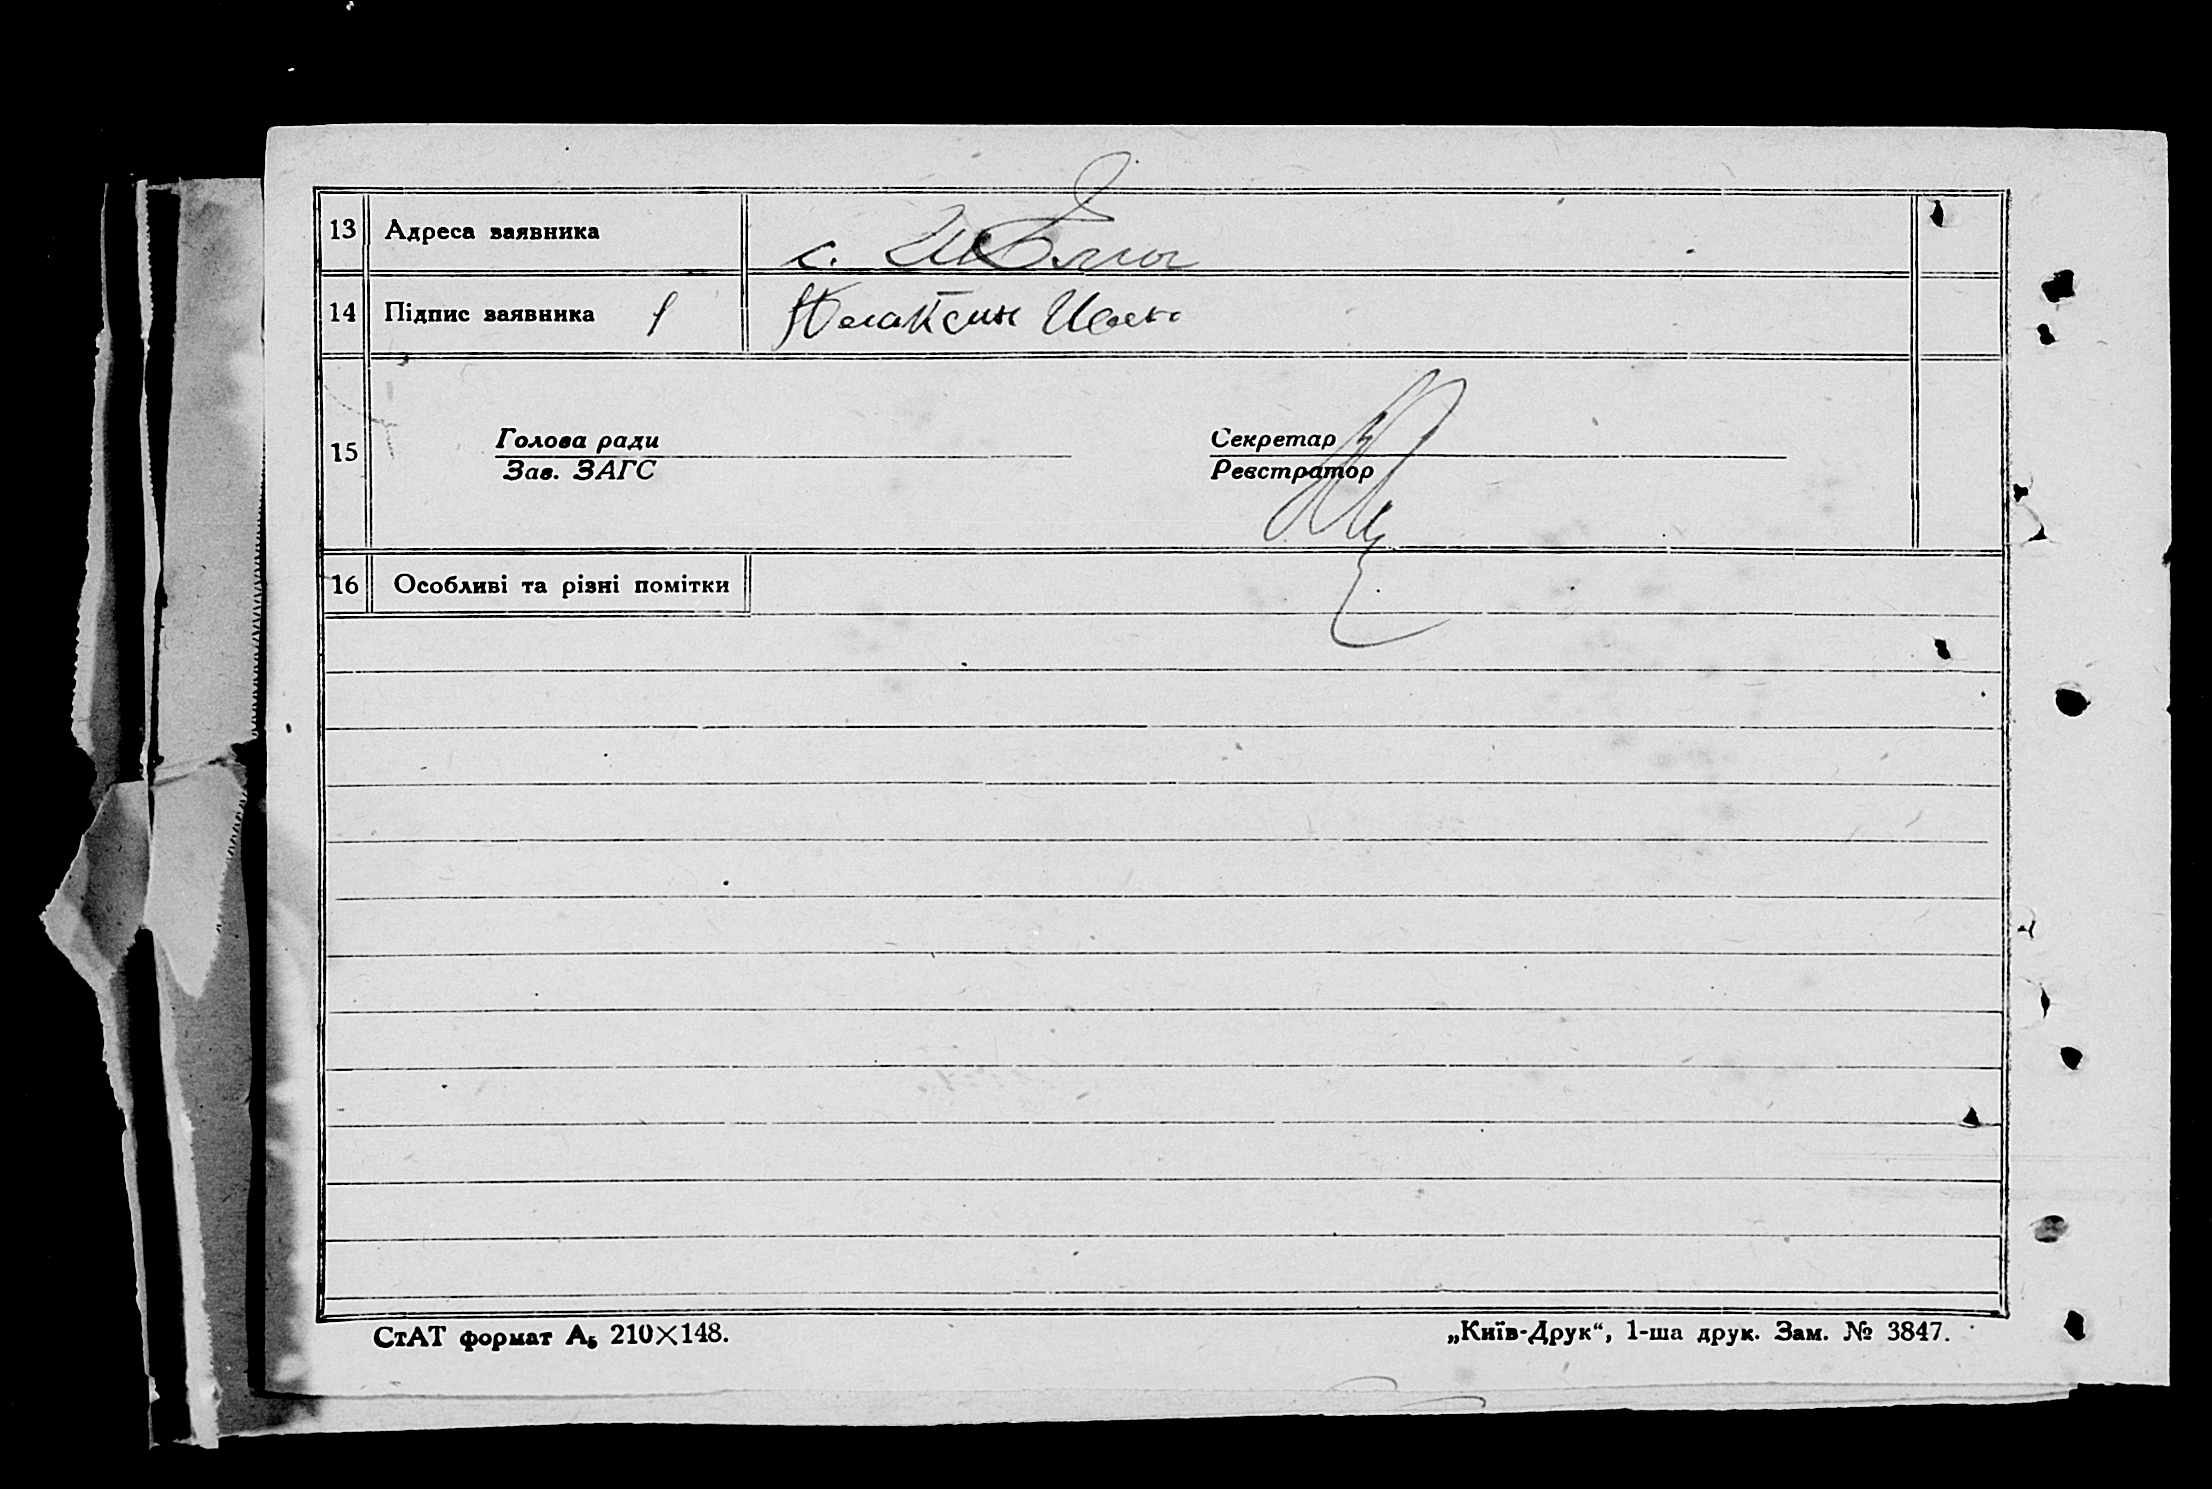 13 Адреса заявника с.
14 Підпис заявника
15 Голова ради Секретар
Зав. ЗАГС Реєстратор
16 Особливі та різні помітки
СтАТ формат А5 210×148. „Київ-Друк“, 1-ша друк. Зам. № 3847.